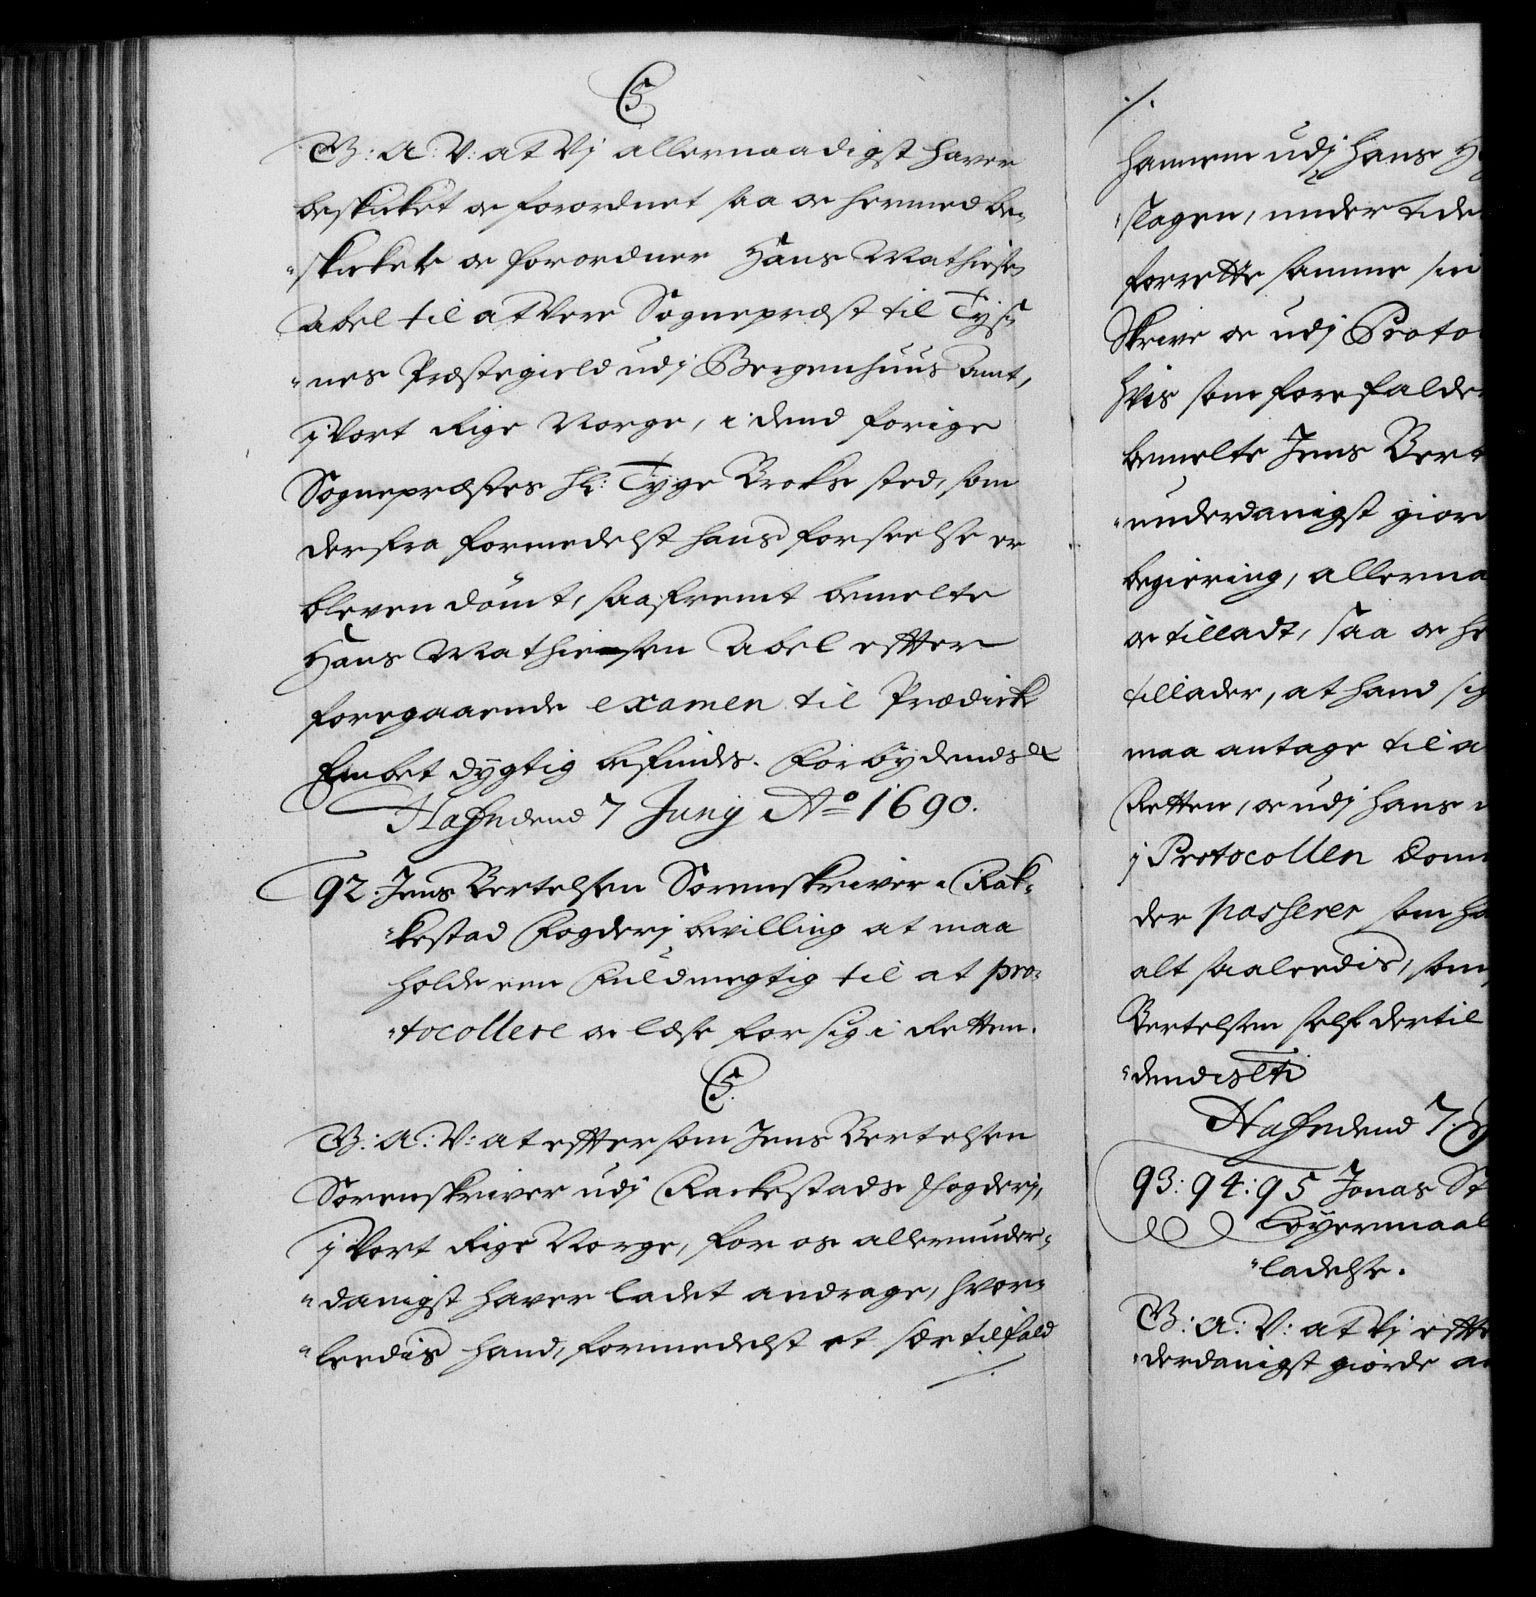 C5.
G: A: V: at Vj allernaadigst haver
beskicket oc forordnet saa oc hermed be„
„skicker oc forordner Hans Mathiesen
Abel til at vere Sogneprest til Tys„
„nes Præstegield udj Bergenhuus Amt,
j Vort Rige Norge, i dend forige
Sogneprestes Hr: Tyge Broks sted, som
derfra formedelst hans forseelse er
bleven dömt, saafremt bemelte
Hans Mathiesen Abel efter
foregaaende examen til Prædicke
Embet dygtig befindes. Forbydendes &c
Hafn dend 7 Junij Ao 1690.
92. Jens Bertelsen Sorenskriver i Rak„
„kestad Fogderj bevilling at maa
holde een Fuldmegtig til at pro„
„tocollere oc læse for sig i Retten.
C5.
G: A: V: at eftersom Jens Bertelsen
Sorenskriver udj Rackestads Fogderj,
j Vort Rige Norge, for os allerunder„
„danigst haver ladet andrage, hvor„
„leedis hand, formedelst et sær tilfald
./.
./.
hannem udj hans
slagen, under tiden
forrette samme sin
Skrive oc udj Proto
hvis som forefalder
bemelte Jens Bert
„underdanigst giord
begiering, allerna
oc tilladt, saa oc he
tillader, at hand sig
maa antage til a
Retten, oc udj hans
j Protocollen Dom
der passerer som ha
alt saaleedis, som
Bertelsen self dertil
„dendis &c
Hafn dend 7. J
93: 94: 95 Jonas St
Løyermaal
„ladelse.
G: A: V: at Vj efte
„derdanigst giorde an